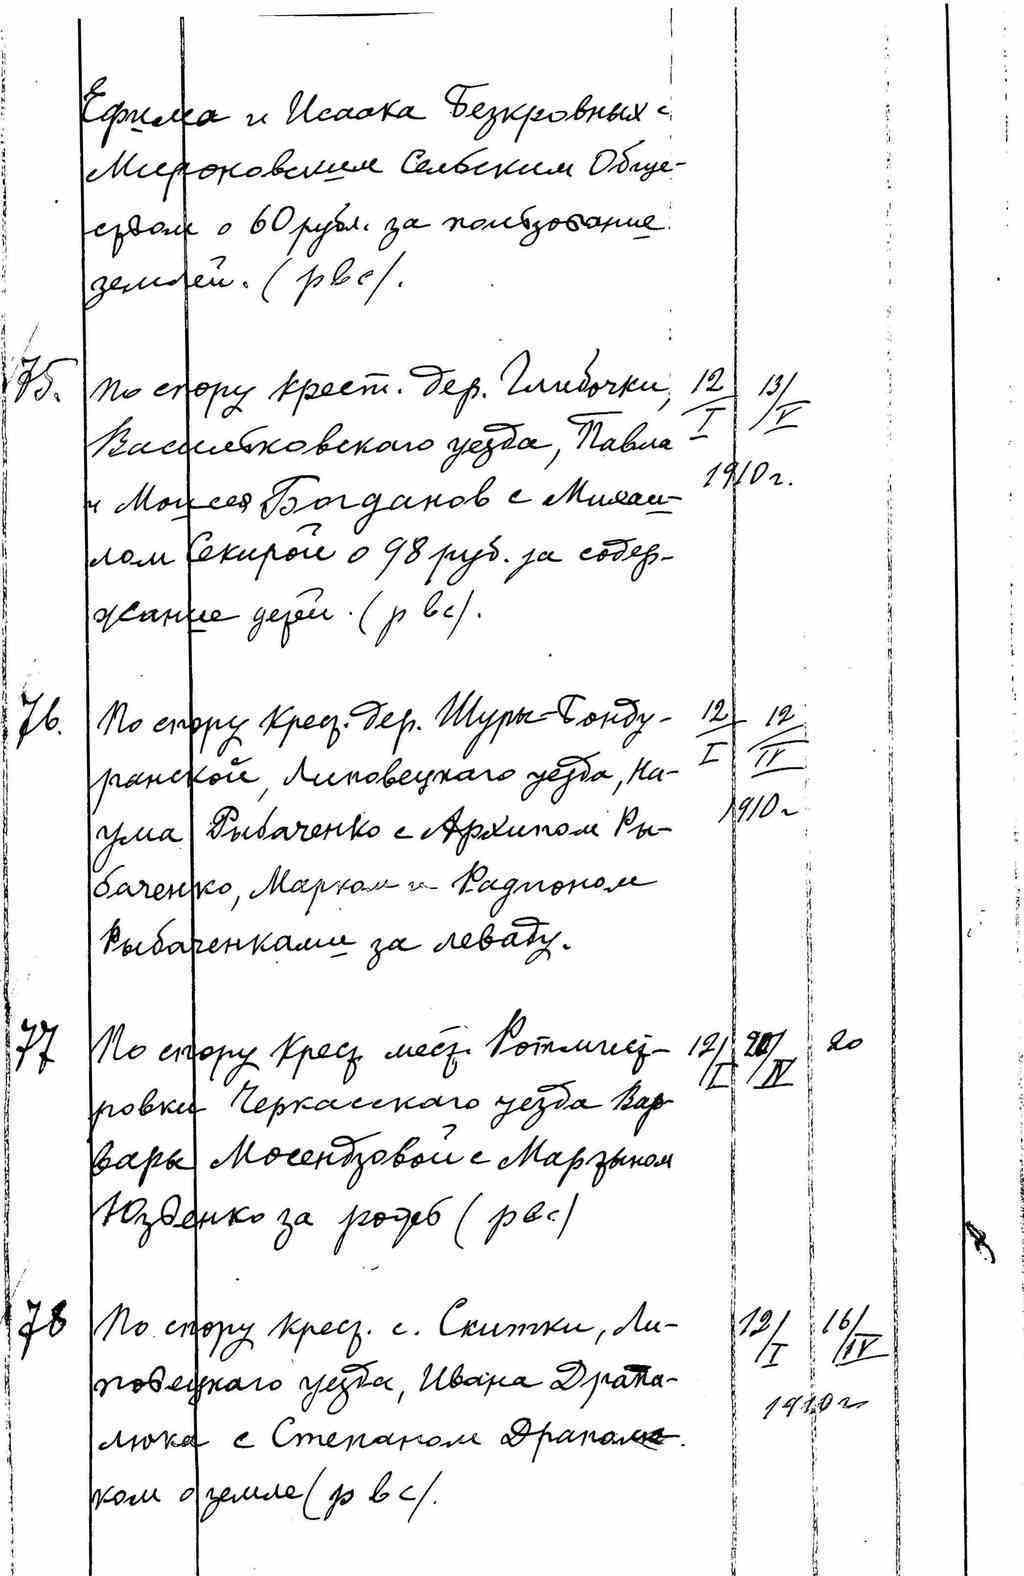 Ефима и Исаака Безкровных с
Мироновским Сельским Обще-
ством о 60 рубл. за пользование
землей. (рвс).
75. По спору крест. дер. Глибочки, 12/I 13/V
Васильковского уезда, Павла
и Моисея Богданов с Михаи- 1910 г.
лом Секирой о 98 руб. за содер-
жание детей. (рвс).
76. По спору крест. дер. Шуры-Бонду- 12/I 12/IV
ранской, Липовецкаго уезда, На-
ума Рыбаченко с Архипом Ры- 1910 г
баченко, Марком и Радионом
Рыбаченками за леваду.
77 По спору крест. мест. Ротмист- 12/I 20/IV 20
ровки Черкасскаго уезда Вар-
вары Мосендзовой с Мартыном
Юзвенко за погреб (рвс)
78 По спору крест. с. Скитки, Ли- 12/I 16/IV
повецкаго уезда, Ивана Драпа- 1910 г
люка с Степаном Драпалю-
ком о земле (рвс).